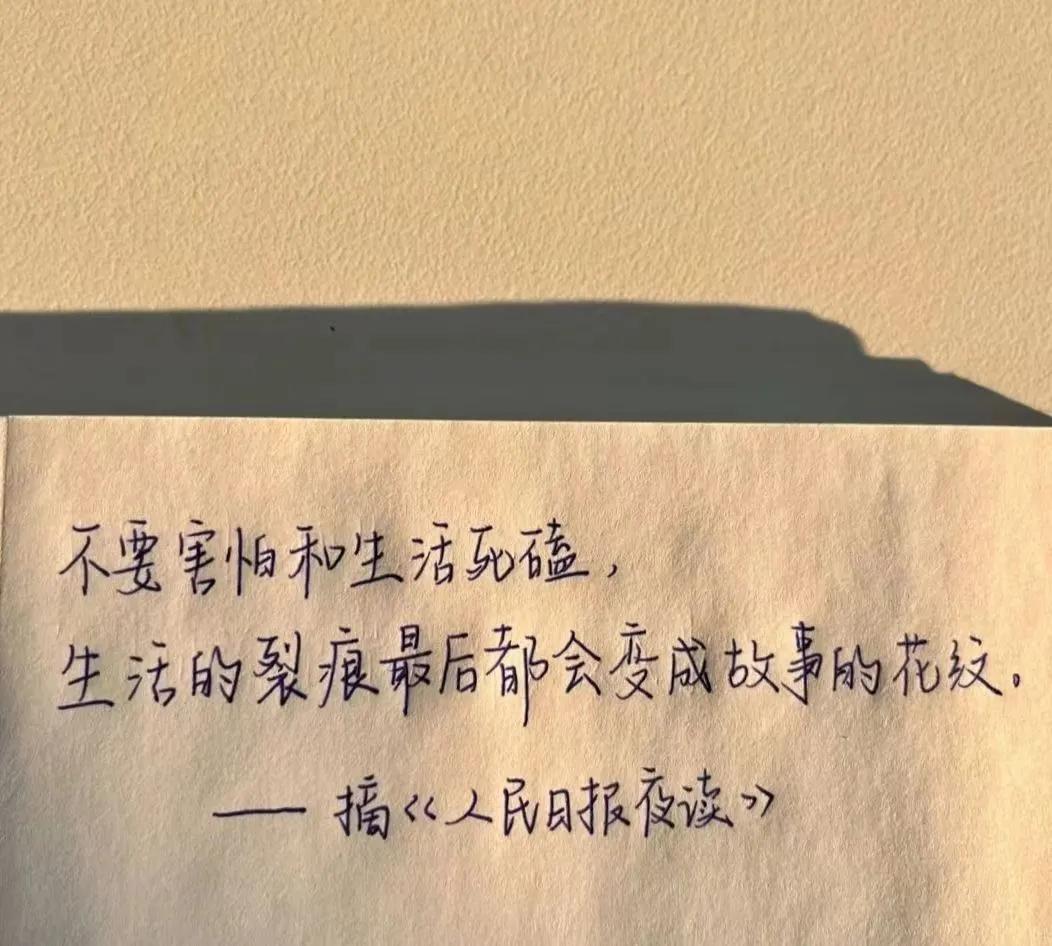 不要害怕和生活死磕，
生活的裂痕最后都会变成故事的花纹。
—— 摘《人民日报夜读》